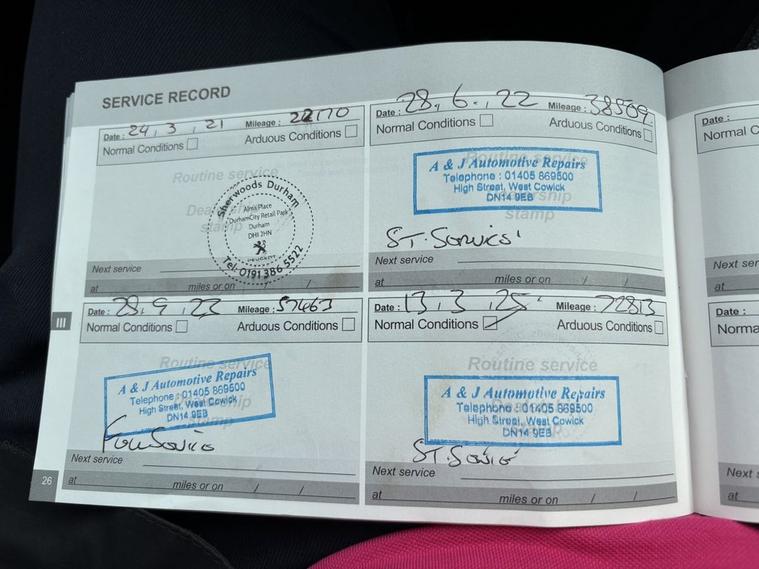 SERVICE RECORD
Date: 24, 3, 21 Mileage: 22170
Normal Conditions Arduous Conditions
Routine service
Sherwoods Durham
Alma Place
DurhamCity Retail Park
Durham
DH1 2HN
PEUGEOT
Tel: 0191 386 5522
Next service
at miles or on / /
Date: 28, 6., 22 Mileage: 38509
Normal Conditions Arduous Conditions
A & J Automotive Repairs
Telephone : 01405 869500
High Street, West Cowick
DN14 9EB
stamp
ST. Service
Next service
at miles or on / /
III
Date: 28, 9, 23 Mileage: 57463
Normal Conditions Arduous Conditions
Routine service
A & J Automotive Repairs
Telephone : 01405 869500
High Street, West Cowick
DN14 9EB
stamp
Full Service
Next service
at miles or on / /
Date: 13, 3, 25 Mileage: 72813
Normal Conditions Arduous Conditions
Routine service
A & J Automotive Repairs
Telephone : 01405 869500
High Street, West Cowick
DN14 9EB
ST. Service
Next service
at miles or on / /
26
Date:
Normal C
Next ser
at
Date:
Norma
Next s
at